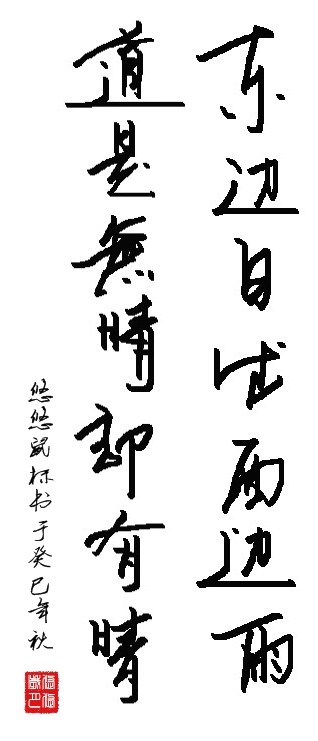 东边日出西边雨
道是無晴却有晴
悠悠鼠标书于癸巳年秋